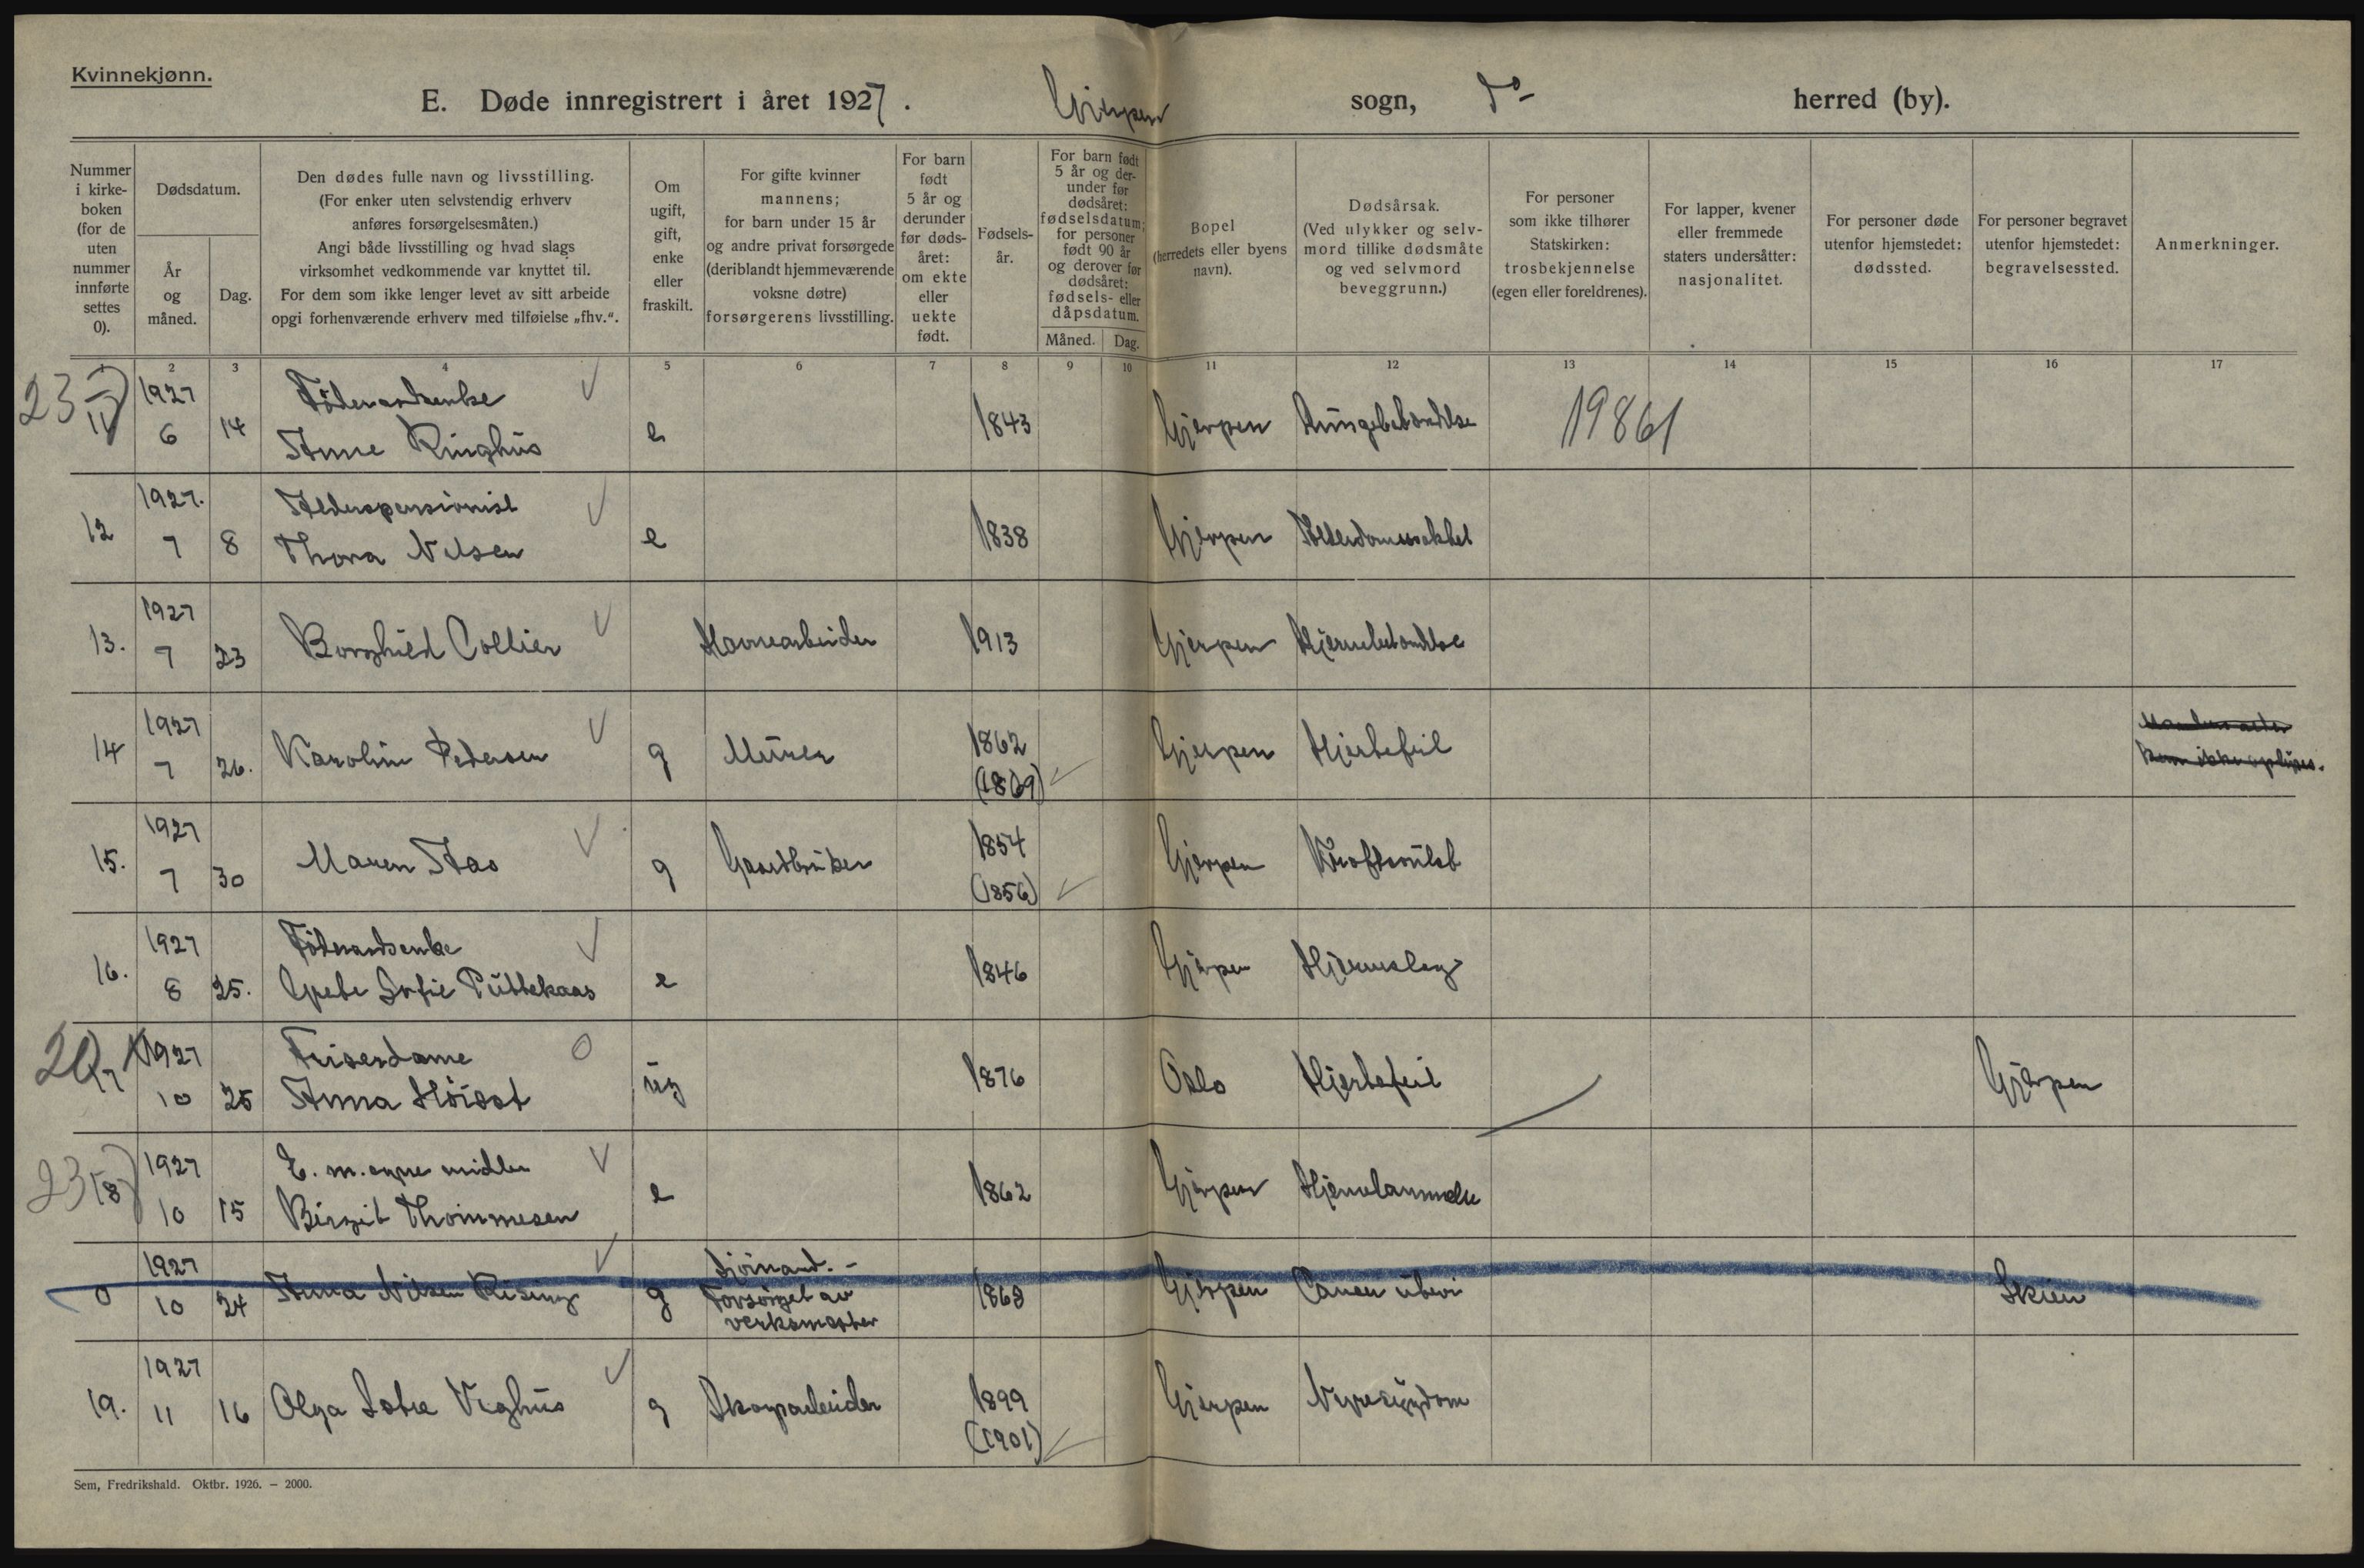 Kvinnekjønn.
E. Døde innregistrert i året 1927. Gjerpen sogn, do herred (by).
Nummer i kirkeboken (for de uten nummer innførte settes 0).
Dødsdatum.
År og måned.
Dag.
Den dødes fulle navn og livsstilling.
(For enker uten selvstendig erhverv anføres forsørgelsesmåten.)
Angi både livsstilling og hvad slags virksomhet vedkommende var knyttet til.
For dem som ikke lenger levet av sitt arbeide opgi forhenværende erhverv med tilføielse „fhv.“.
Om ugift, gift, enke eller fraskilt.
For gifte kvinner mannens; for barn under 15 år og andre privat forsørgede (deriblandt hjemmeværende voksne døtre) forsørgerens livsstilling.
For barn født 5 år og derunder før dødsåret: om ekte eller uekte født.
Fødselsår.
For barn født 5 år og derunder før dødsåret: fødselsdatum; for personer født 90 år og derover før dødsåret: fødsels- eller dåpsdatum.
Måned. Dag.
Bopel (herredets eller byens navn).
Dødsårsak. (Ved ulykker og selvmord tillike dødsmåte og ved selvmord beveggrunn.)
For personer som ikke tilhører Statskirken: trosbekjennelse (egen eller foreldrenes).
For lapper, kvener eller fremmede staters undersåtter: nasjonalitet.
For personer døde utenfor hjemstedet: dødssted.
For personer begravet utenfor hjemstedet: begravelsessted.
Anmerkninger.
1 2 3 4 5 6 7 8 9 10 11 12 13 14 15 16 17
23 11 1927 6 14 Føderaadsenke Anne Ringhus e 1843 Gjerpen Lungebetændelse 19861
12 1927. 7 8 Alderspensionist Thora Nilsen e 1838 Gjerpen Alderdomssvakhet
13. 1927 7 23 Borghild Collier Havnearbeider 1913 Gjerpen Hjernebetændelse
14 1927 7 26. Karoline Pedersen g Murer 1862 (1869) Gjerpen Hjertefeil kan ikke oplyses.
15. 1927 7 30 Maren Aas g Gaardbruker 1854 (1856) Gjerpen
16. 1927 8 25. Føderaadsenke Grete Sofie Puttekaas e 1846 Gjerpen Hjerneslag
20 17 1927 10 25 Friserdame Anna Høisæt ug 1876 Oslo Hjertefeil Gjerpen
23 18 1927 10 15 E. m. egne midler Birgit Thommesen e 1862 Gjerpen Hjernelammelse
0 1927 10 24 Anna Nilsen Rising g Sjømand. - Forsørget av verksmester 1868 Gjerpen Cancer uteri Skien
19. 1927 11 16 Olga Vighus g Skogsarbeider 1899 (1901) Gjerpen Nyresygdom
Sem, Fredrikshald. Oktbr. 1926. – 2000.